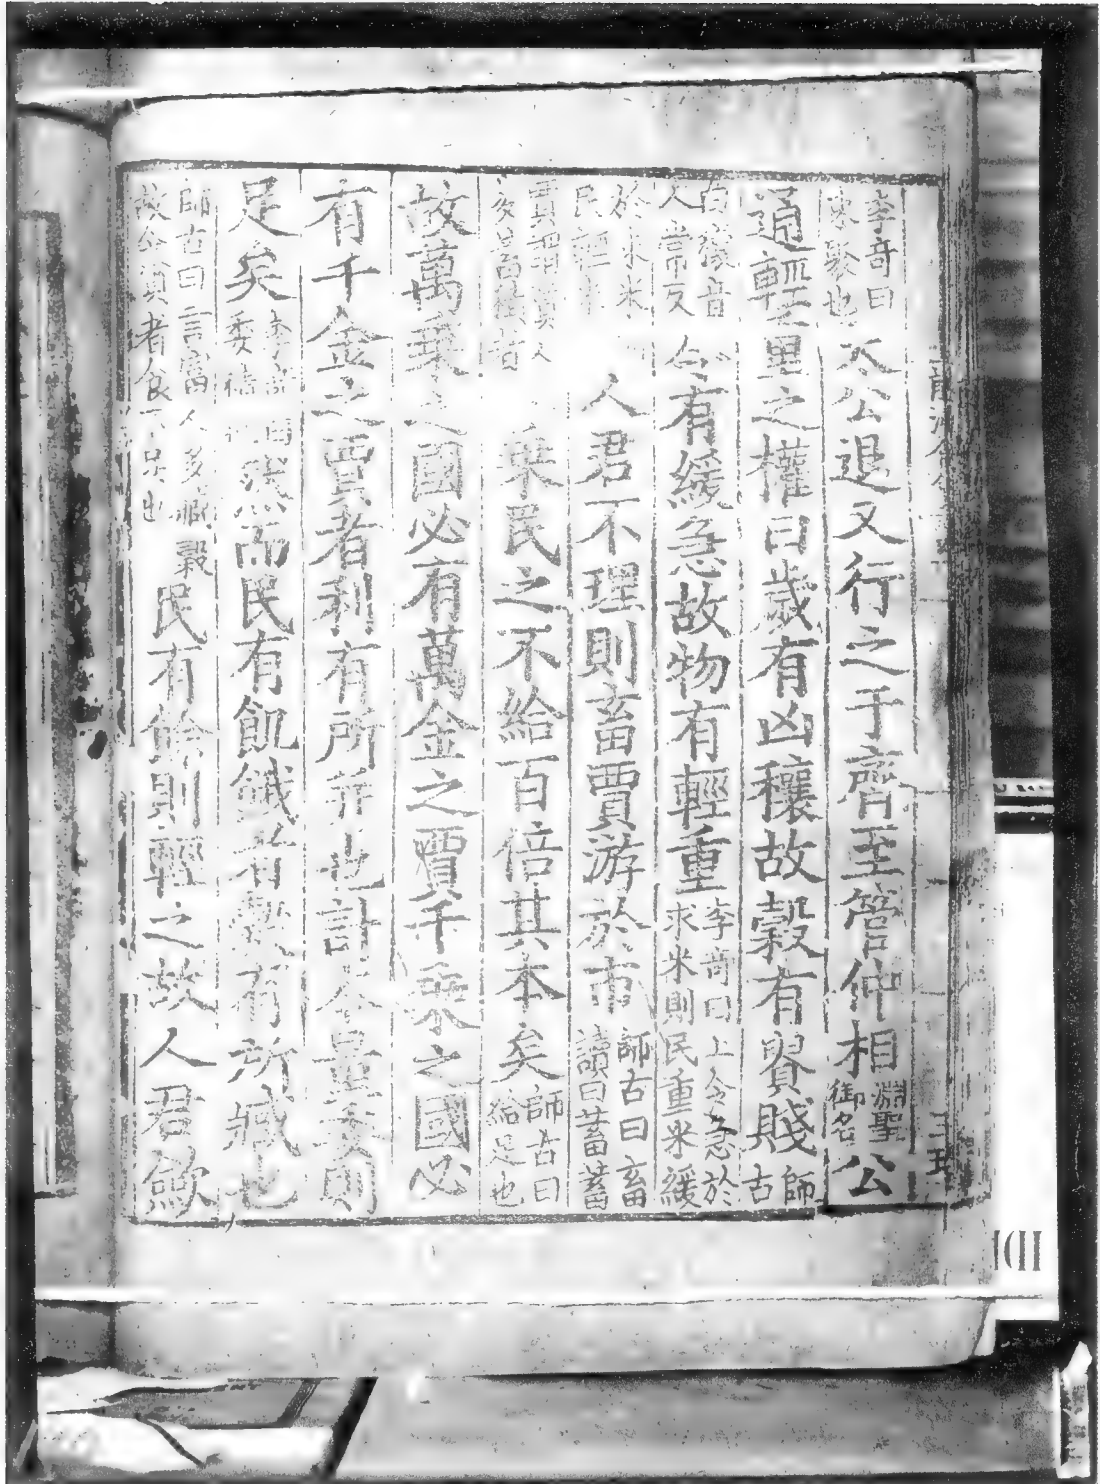 李奇曰
束聚也太公退又行之于齊至管仲相淵聖御名公
通輕重之權曰歲有凶穰故穀有貴賤師古
曰穰音人常反令有緩急故物有輕重李奇曰上令急於求米則民重米緩
於求米民輕米人君不理則畜賈游於市師古曰畜讀曰蓄蓄
賈謂賈人多蓄積者乘民之不給百倍其本矣師古曰給足也
故萬乘之國必有萬金之賈千乘之國必
有千金之賈者利有所并也計本量委則
足矣李奇曰委積也然而民有飢餓者穀有所臧也
師古曰言富人多臧穀故令貧者食不足也民有餘則輕之故人君斂